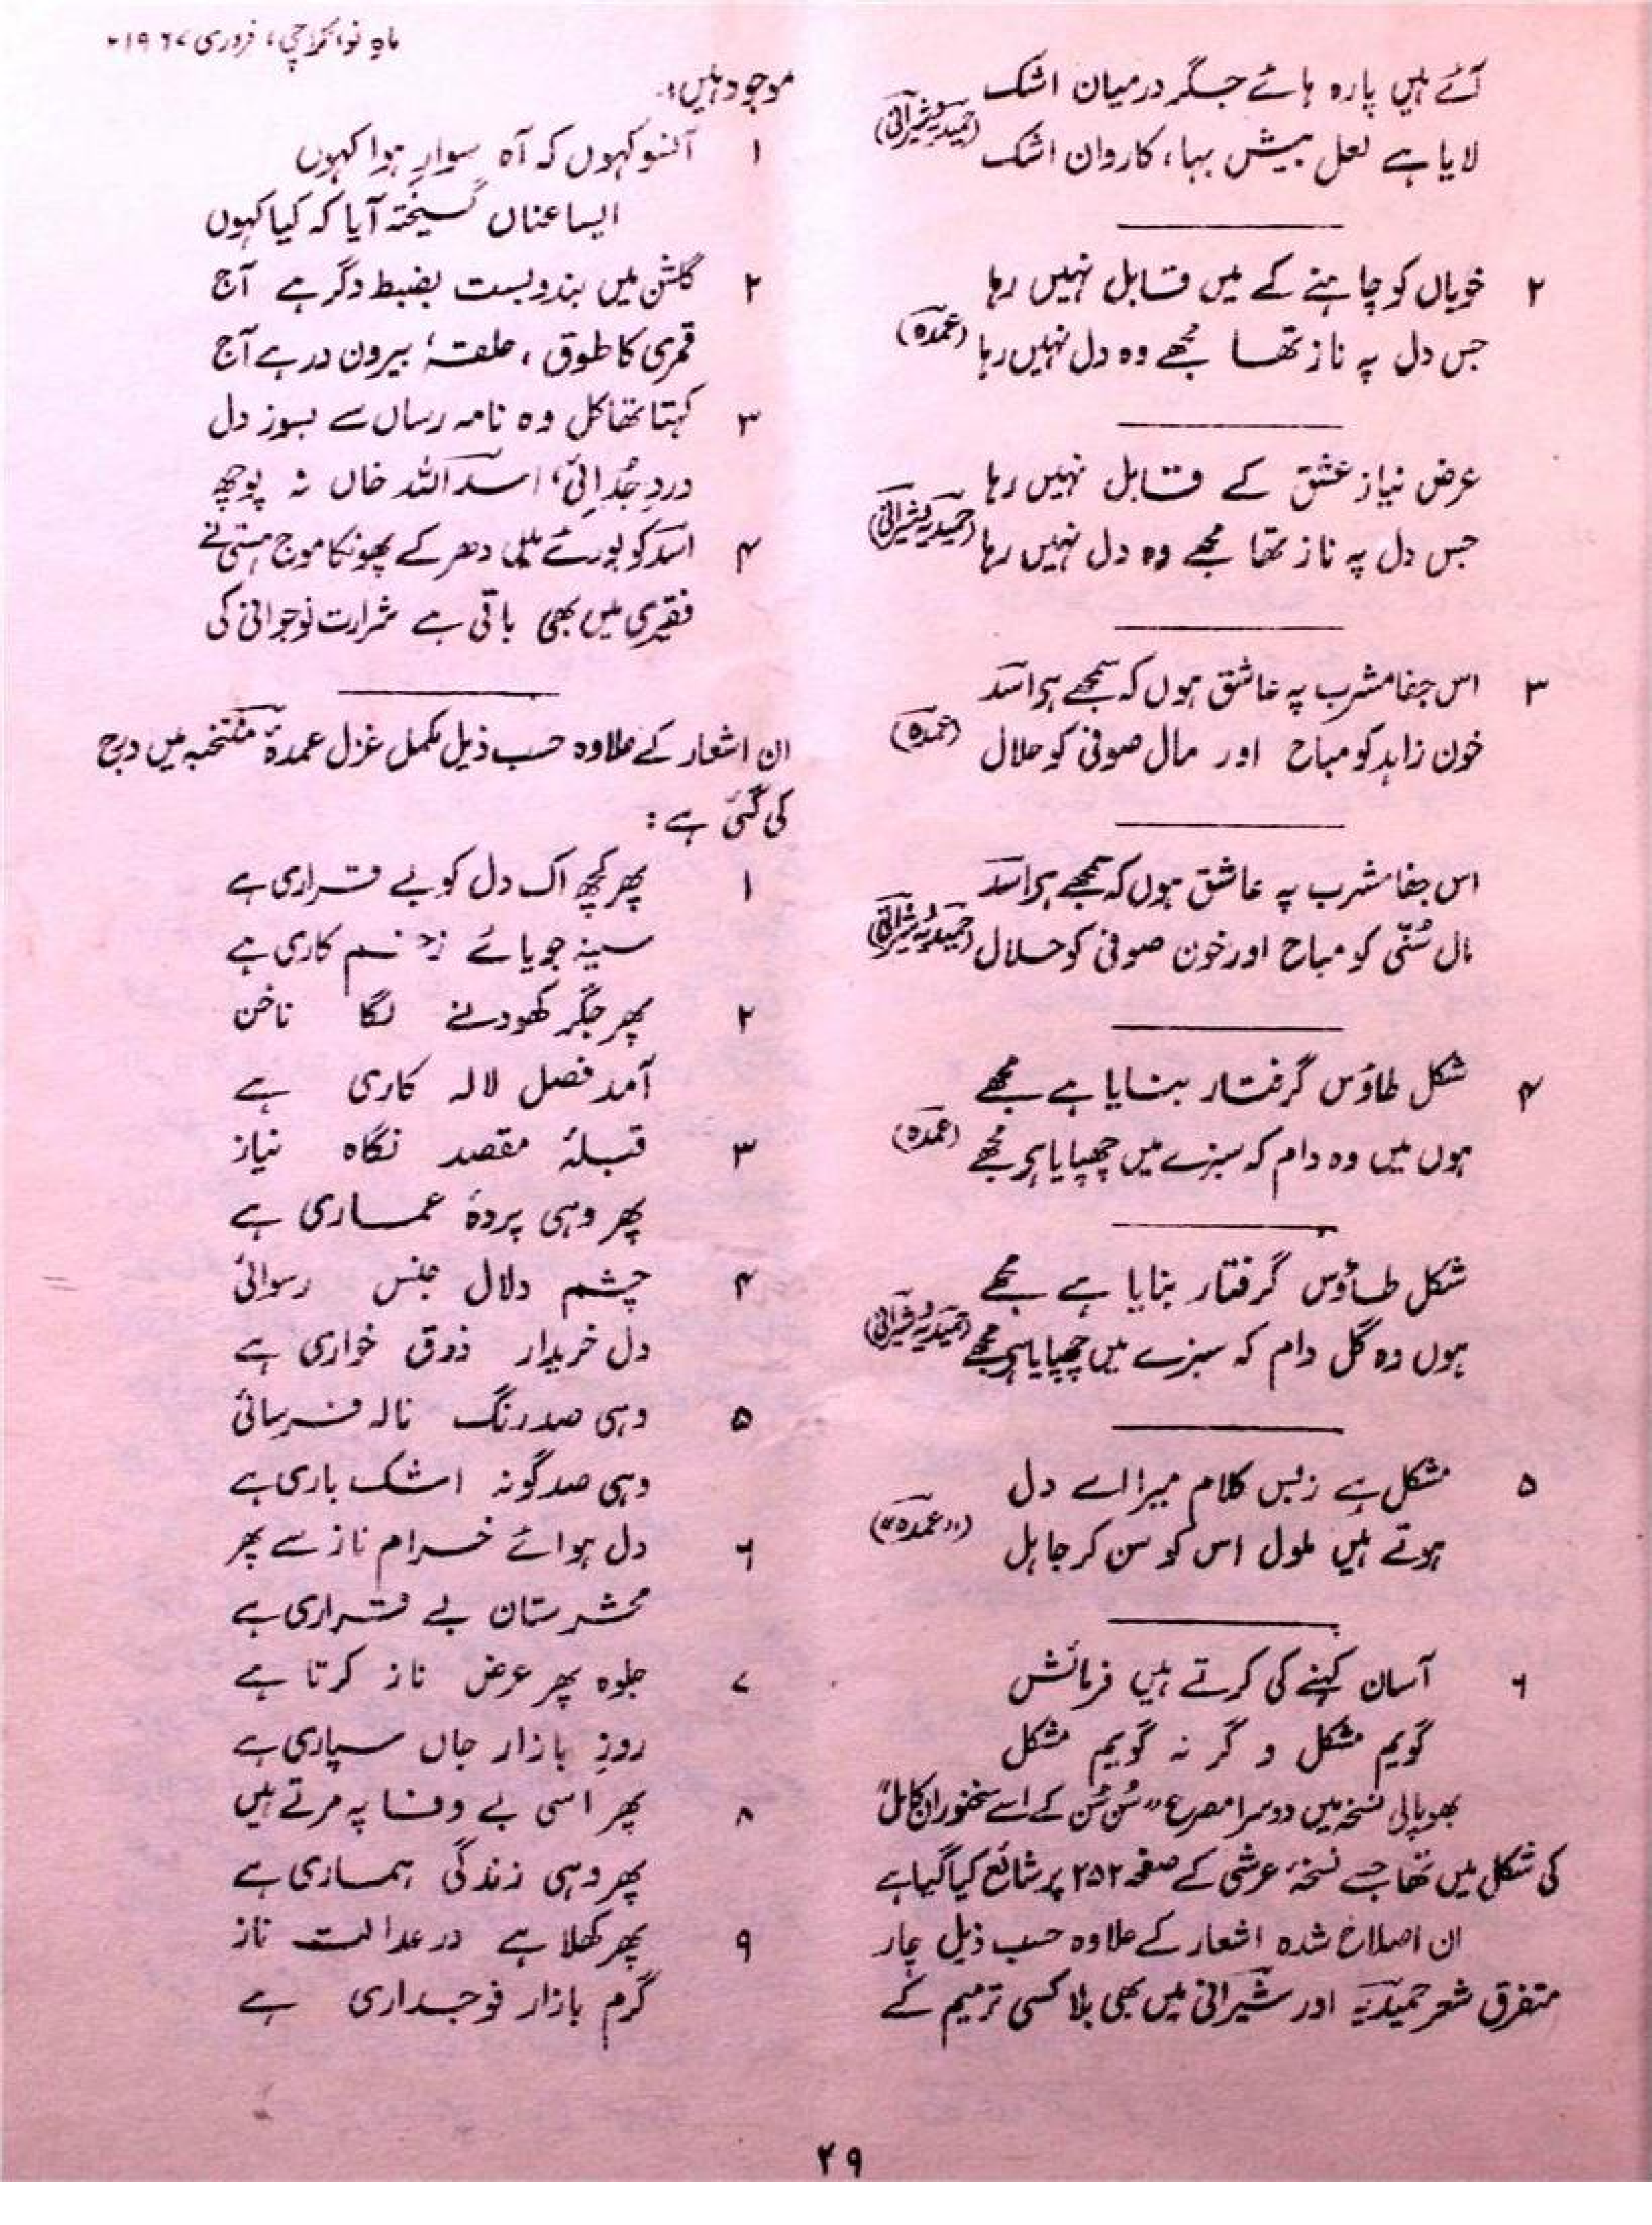 ماہِ نو، کراچی، فروری ۱۹۶۷ء
آئے ہیں پارہ ہائے جگر درمیان اشک
لایا ہے لعل بیش بہا، کاروان اشک (حمیدیہ و شیرانی)
۲ خوباں کو چاہنے کے میں قابل نہیں رہا
جس دل پہ ناز تھا مجھے وہ دل نہیں رہا (عمدہ)
عرض نیاز عشق کے قابل نہیں رہا
جس دل پہ ناز تھا مجھے وہ دل نہیں رہا (حمیدیہ و شیرانی)
۳ اس جفا مشرب پہ عاشق ہوں کہ سمجھے ہے اسد
خون زاہد کو مباح اور مال صوفی کو حلال (عمدہ)
اس جفا مشرب پہ عاشق ہوں کہ سمجھے ہے اسد
مال سُنّی کو مباح اور خون صوفی کو حلال (حمیدیہ و شیرانی)
۴ شکل طاؤس گرفتار بنایا ہے مجھے
ہوں میں وہ دام کہ سبزے میں چھپایا ہے مجھے (عمدہ)
شکل طاؤس گرفتار بنایا ہے مجھے
ہوں وہ گل دام کہ سبزے میں چھپایا ہے مجھے (حمیدیہ و شیرانی)
۵ مشکل ہے زبس کلام میرا اے دل
ہوتے ہیں ملول اس کو سن کر جاہل ("عمدہ")
۶ آسان کہنے کی کرتے ہیں فرمائش
گویم مشکل و گر نہ گویم مشکل
بھوپالی نسخہ میں دوسرا مصرع "سُن سُن کے اسے سخنوران کامل"
کی شکل میں تھا جسے نسخۂ عرشی کے صفحہ ۲۵۲ پر شائع کیا گیا ہے
ان اصلاح شدہ اشعار کے علاوہ حسب ذیل چار
متفرق شعر حمیدیہ اور شیرانی میں بھی بلا کسی ترمیم کے
موجود ہیں:۔
۱ آنسو کہوں کہ آہ سوارِ ہوا کہوں
ایسا عناں گسیختہ آیا کہ کیا کہوں
۲ گلشن میں بندوبست بضبط دگر ہے آج
قمری کا طوق، حلقۂ بیرون در ہے آج
۳ کہتا تھا کل وہ نامہ رساں سے بسوز دل
دردِ جُدائیِ اسد اللہ خاں نہ پوچھ
۴ اسد کو بورے میں دھر کے پھونکا موج ہستی نے
فقیری میں بھی باقی ہے شرارت نوجوانی کی
ان اشعار کے علاوہ حسب ذیل مکمل غزل عمدۂ منتخبہ میں درج
کی گئی ہے:
۱ پھر کچھ اک دل کو بے قراری ہے
سینہ جویائے زخم کاری ہے
۲ پھر جگر کھودنے لگا ناخن
آمد فصل لالہ کاری ہے
۳ قبلۂ مقصد نگاہ نیاز
پھر وہی پردۂ عماری ہے
۴ چشم دلال جنس رسوائی
دل خریدار ذوق خواری ہے
۵ وہی صد رنگ نالہ فرسائی
وہی صد گونہ اشک باری ہے
۶ دل ہوائے خرام ناز سے پھر
محشرستان بے قراری ہے
۷ جلوہ پھر عرض ناز کرتا ہے
روزِ بازار جاں سپاری ہے
۸ پھر اسی بے وفا پہ مرتے ہیں
پھر وہی زندگی ہماری ہے
۹ پھر کھلا ہے در عدالت ناز
گرم بازار فوجداری ہے
۴۹